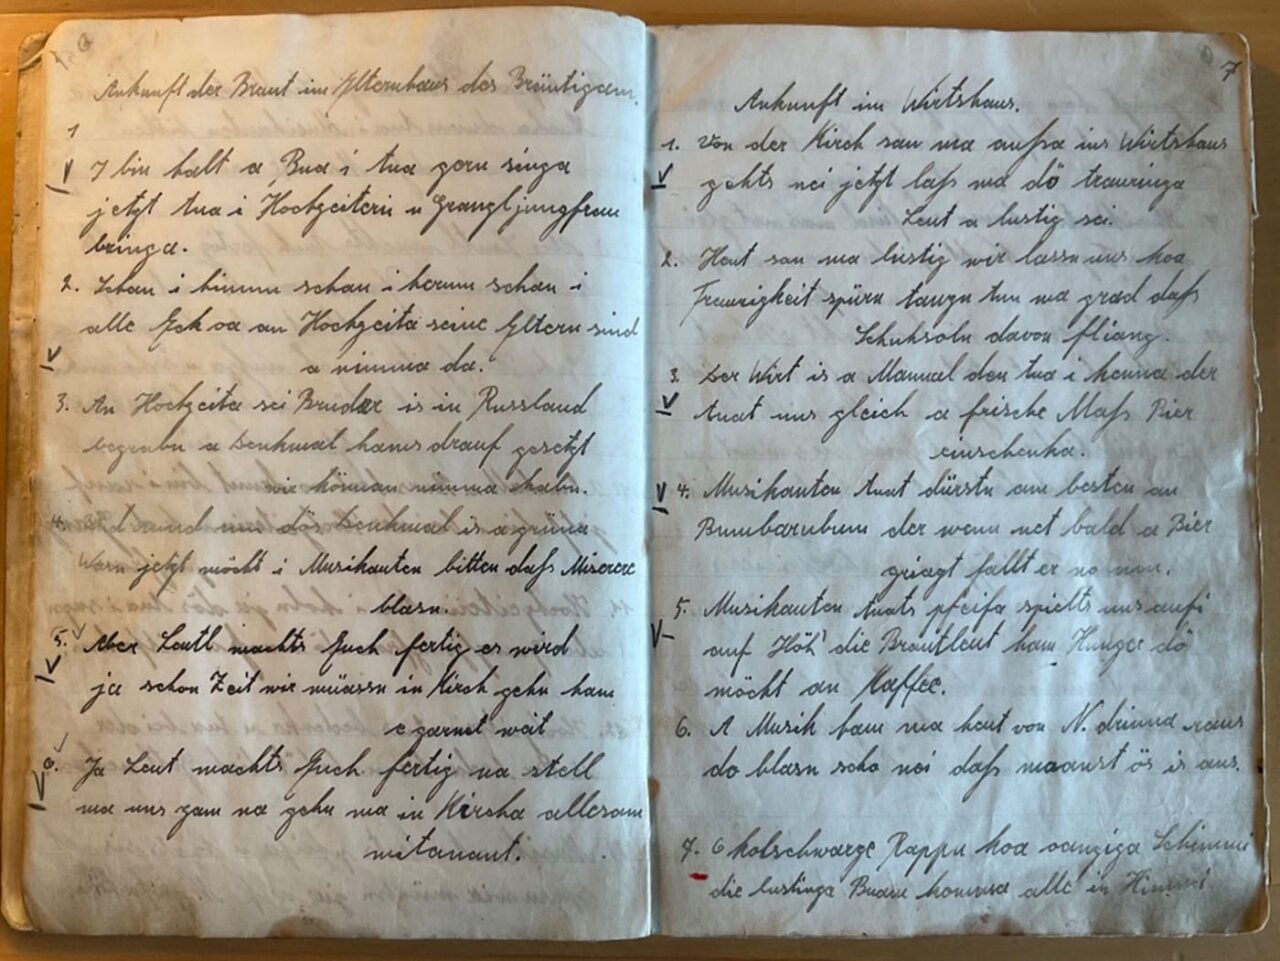 Ankunft der Braut im Elternhaus des Bräutigam.
1
I bin halt a Bua i tua gern singa
jetzt tua i Hochzeiterin u Grangljungfrau
bringa.
2. Schau i hinum schau i herum schau i
alle Eck oa an Hochzeita seine Eltern sind
a nimma da.
3. An Hochzeita sei Bruder is in Russland
begrabn a Denkmal hams drauf gesetzt
wir könnan nimma habn.
4. rund um dös Denkmal is a grüna
Wasn jetzt möcht i Musikanten bitten daß Miserere
blasn.
5. Aber Leutl machts Euch fertig es wird
ja schon Zeit wir müassn in Kirch gehn ham
e garnet weit
6. Ja Leut machts Euch fertig na stell
ma uns zam na gehn ma in Kircha allesam
mitanant.
7
Ankunft im Wirtshaus.
1. Von der Kirch san ma außa ins Wirtshaus
gehts nei jetzt laß ma dö trauringa
Leut a lustig sei.
2. Heut san ma lustig wir lassn uns koa
Traurigkeit spürn tanzn tun ma grad daß
Schuhsoln davon fliang.
3. Der Wirt is a Mannal den tua i kenna der
tuat uns gleich a frische Maß Bier
einschenka.
4. Musikanten tuat dürstn am besten an
Bumbarubum der wenn net bald a Bier
griagt fallt er no um.
5. Musikanten tuats pfeifa spielts uns aufi
auf Höh' die Brautleut ham Hunger dö
möcht an Kaffee.
6. A Musik ham ma heut von N. drinna raus
do blasn scho nei daß maanst ös is aus.
7. 6 kolschwarze Rappn koa oanziga Schimmi
die lustinga Buam komma alle in Himmi